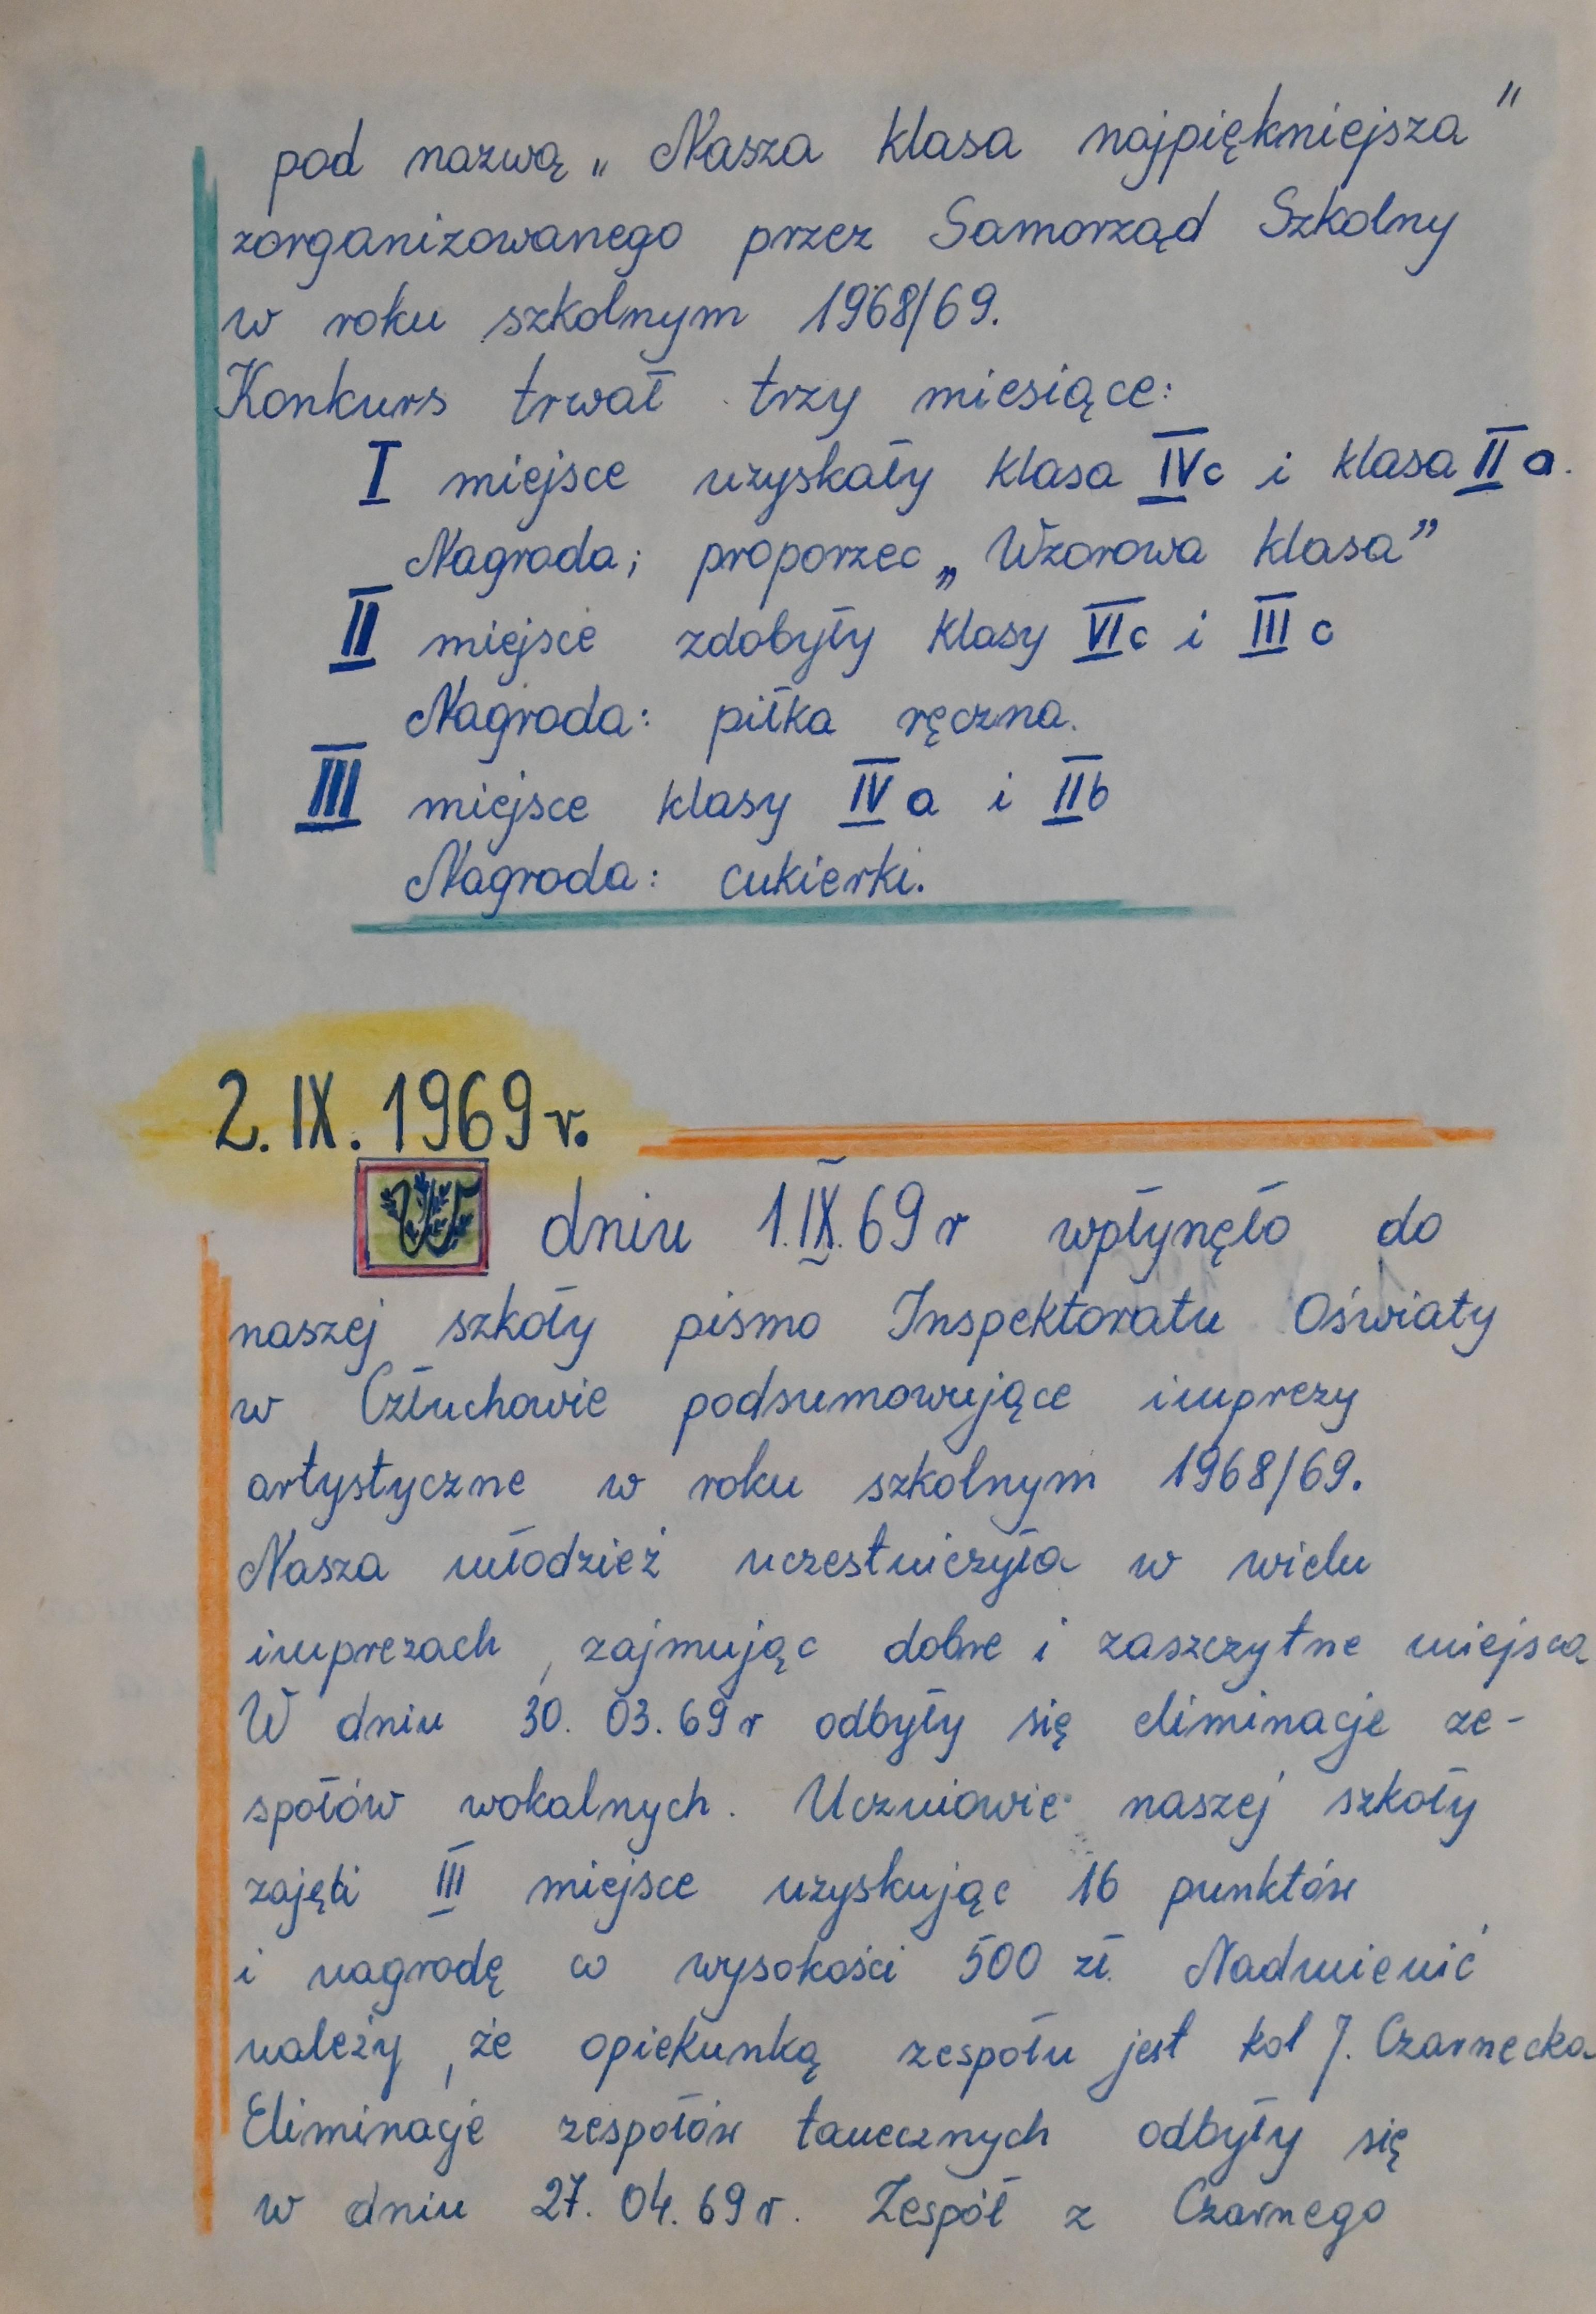 pod nazwą „Nasza klasa najpiękniejsza”
zorganizowanego przez Samorząd Szkolny
w roku szkolnym 1968/69.
Konkurs trwał trzy miesiące:
I miejsce uzyskały klasa IVc i klasa II a.
Nagroda; proporzec „Wzorowa klasa”
II miejsce zdobyły klasy VIc i III c
Nagroda: piłka ręczna.
III miejsce klasy IV a i IIb
Nagroda: cukierki.
2. IX. 1969 r.
W dniu 1.IX.69 r wpłynęło do
naszej szkoły pismo Inspektoratu Oświaty
w Człuchowie podsumowujące imprezy
artystyczne w roku szkolnym 1968/69.
Nasza młodzież uczestniczyła w wielu
imprezach, zajmując dobre i zaszczytne miejsca
W dniu 30. 03. 69 r odbyły się eliminacje ze-
społów wokalnych. Uczniowie naszej szkoły
zajęli III miejsce uzyskując 16 punktów
i nagrodę w wysokości 500 zł. Nadmienić
należy, że opiekunką zespołu jest kol J. Czarnecka
Eliminacje zespołów tanecznych odbyły się
w dniu 27. 04. 69 r. Zespół z Czarnego